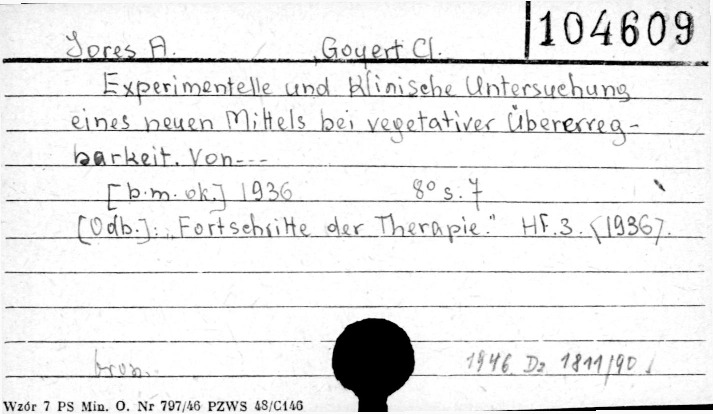 104609
Jores A. Goyert Cl.
Experimentelle und Klinische Untersuchung
eines neuen Mittels bei vegetativer Übererreg-
barkeit. Von---
[b.m.ok.] 1936 8° s. 7
[Odb.]: „Fortschritte der Therapie." Hf. 3. (1936).
bron. 1946 Dz 1811/90
Wzór 7 PS Min. O. Nr 797/46 PZWS 48/C146